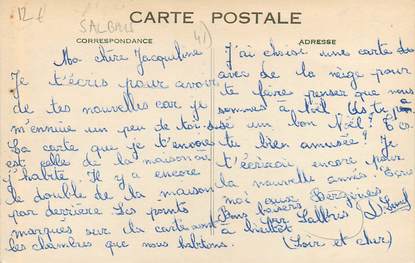 12 €
SALBRIS
41
CARTE POSTALE
CORRESPONDANCE
ADRESSE
Ma chère Jacqueline
Je t'écris pour avoir
de tes nouvelles car je
m'ennuie un peu de toi.
La carte que je t'encore
est celle de la maison où
j'habite. Il y a encore
le double de la maison
par derrière Les points
marqués sur la carte sont
les chambres que nous habitons.
J'ai choisi une carte
avec de la neige pour
te faire penser que nous
sommes à Noël. As tu
un bon Noël ?
tu bien amusée ? Je
t'écrirai encore pour
la nouvelle année. Ecris
moi aux Bergeries
par Salbris
Bons baisers
à bientôt
(Loir et cher)